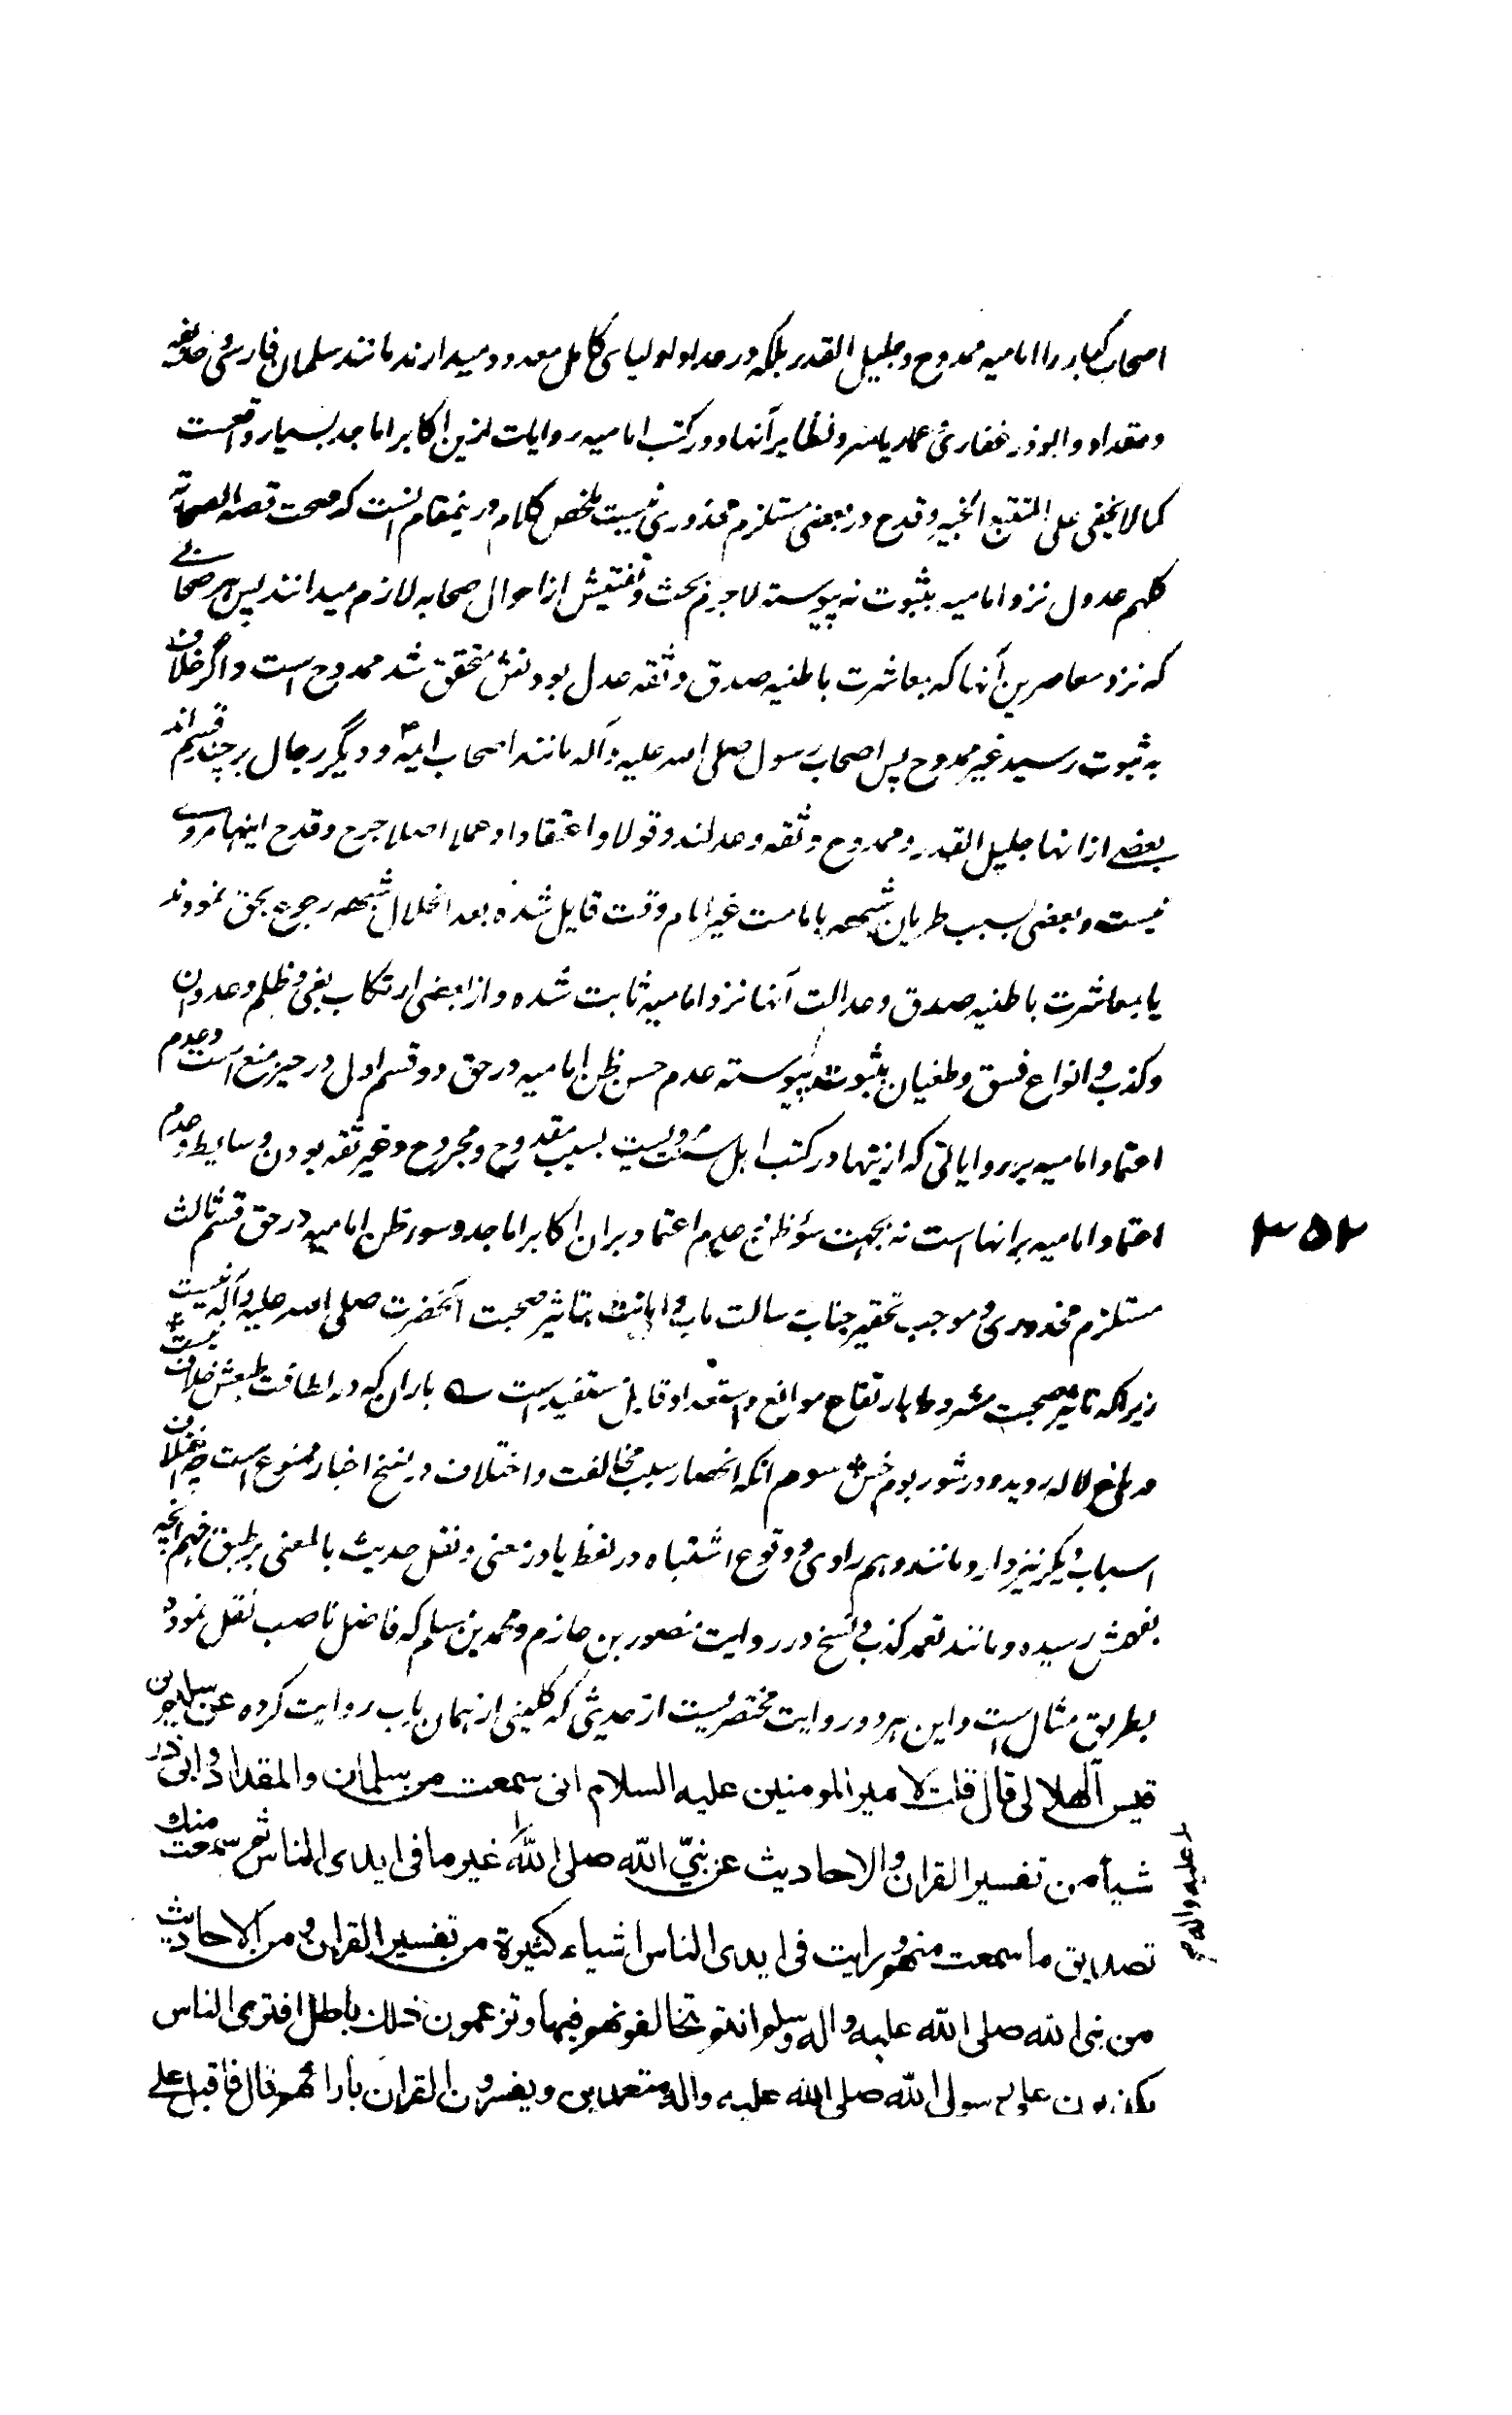 اصحاب کبار را امامیه ممدوح و جلیل القدر بلکه در عداد اولیای کامل معدود میدارند مانند سلمان فارسی و حذیفه
و مقداد و ابوذر غفاری و عمار یاسر و نظایر آنها و در کتب امامیه روایات ازین اکابر اماجد بسیار واقعست
کما لا یخفی علی المتتبع الخبیر و قدح در بعضی مستلزم محذوری نیست ملخص کلام درینمقام آنست که صحت قصه الصحابة
کلهم عدول نزد امامیه بثبوت نه پیوسته لاجرم بحث و تفتیش از احوال صحابه لازم میدانند پس هر صحابی
که نزد معاصرین آنها که بمعاشرت باطنیه صدق و ثقه عدل بودنش متحقق شد ممدوح است و اگر خلاف
به ثبوت رسید غیر ممدوح پس اصحاب رسول صلی الله علیه و آله مانند اصحاب ایمه و دیگر رجال بر چند قسم اند
بعضی از انها جلیل القدر و ممدوح و ثقه و عدلند و قولا و اعتقادا و عملا اصلا جرح و قدح اینها مروی
نیست و بعضی بسبب طریان شبهه بامامت غیر امام وقت قایل شده بعد انحلال شبهه رجوع بحق نمودند
یا بمعاشرت باطنیه صدق و عدالت آنها نزد امامیه ثابت شده و از بعضی ارتکاب بغی و ظلم و عدوان
و کذب و انواع فسق و طغیان بثبوت پیوسته عدم حسن ظن امامیه در حق دو قسم اول در حیز منع است و عدم
اعتماد امامیه بر روایاتی که ازینها در کتب اهل سنت مرویست بسبب مقدوح و مجروح و غیر ثقه بودن وسایط و عدم
اعتماد امامیه برانها است نه بجهت سؤ ظن و عدم اعتماد بران اکابر اماجد و سوء ظن امامیه در حق قسم ثالث
۳۵۲
مستلزم محذوری و موجب تحقیر جناب رسالت ماب و اهانت بتاثیر صحبت آنحضرت صلی الله علیه و آله نیست
زیرا که تاثیر صحبت مشروط بارتفاع موانع و استعداد قابل مستفید است باران که در لطافت طبعش خلاف نیست
در باغ لاله روید و در شوره بوم خس سوم انکه انحصار سبب مخالفت و اختلاف در نسخ اخبار ممنوع است چه اختلاف
اسباب دیگر نیز دارد مانند وهم راوی و وقوع اشتباه در لفظ یا در معنی و نقل حدیث بالمعنی بر طبق فهم آنچه
بفهمش رسیده و مانند تعمد کذب و نسخ در روایت منصور بن حازم و محمد بن مسلم که فاضل ناصب نقل نموده
بطریق مثال است و این هر دو روایت مختصریست از حدیثی که کلینی از همان باب روایت کرده عن سلیم بن
قیس الهلالی قال قلت لامیر المومنین علیه السلام انی سمعت من سلمان والمقداد و ابی ذر
شیأ من تفسیر القران والاحادیث عن نبی الله صلی الله غیر ما فی ایدی الناس ثم سمعت منك
علیه واله
تصدیق ما سمعت منهم و رایت فی ایدی الناس اشیاء کثیرة من تفسیر القران و من الاحادیث
من نبی الله صلی الله علیه واله وسلم انتم تخالفونهم فیها و تزعمون ذلك باطل افتری الناس
یکذبون علی رسول الله صلی الله علیه واله متعمدین ویفسرون القران بارائهم قال فاقبل علی